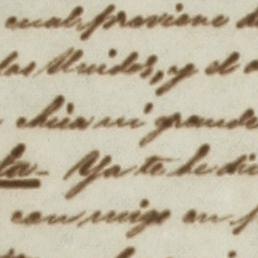 cual proviene d
dos Unidos, y el a
chica ni grande
ta - Ya te he di
con migo en